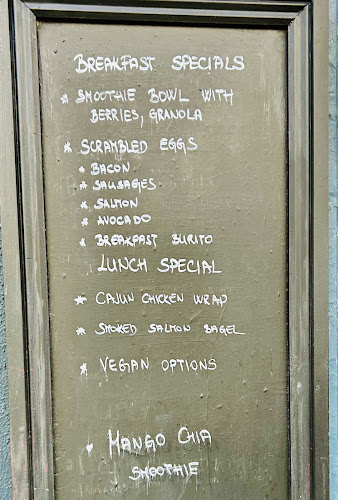 BREAKFAST SPECIALS
* SMOOTHIE BOWL WITH
BERRIES, GRANOLA
* SCRAMBLED EGGS
* BACON
* SAUSAGES
* SALMON
* AVOCADO
* BREAKFAST BURITO
LUNCH SPECIAL
* CAJUN CHICKEN WRAP
* SMOKED SALMON BAGEL
* VEGAN OPTIONS
* MANGO CHIA
SMOOTHIE